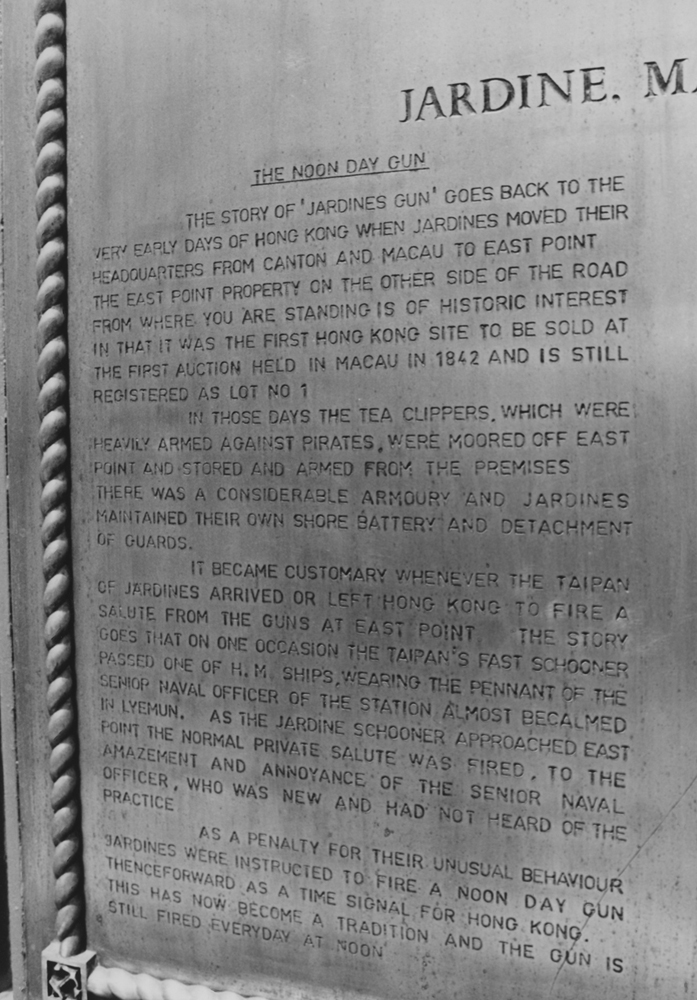 JARDINE. MA
THE NOON DAY GUN
THE STORY OF 'JARDINES GUN' GOES BACK TO THE
VERY EARLY DAYS OF HONG KONG WHEN JARDINES MOVED THEIR
HEADQUARTERS FROM CANTON AND MACAU TO EAST POINT
THE EAST POINT PROPERTY ON THE OTHER SIDE OF THE ROAD
FROM WHERE YOU ARE STANDING IS OF HISTORIC INTEREST
IN THAT IT WAS THE FIRST HONG KONG SITE TO BE SOLD AT
THE FIRST AUCTION HELD IN MACAU IN 1842 AND IS STILL
REGISTERED AS LOT NO 1
IN THOSE DAYS THE TEA CLIPPERS, WHICH WERE
HEAVILY ARMED AGAINST PIRATES, WERE MOORED OFF EAST
POINT AND STORED AND ARMED FROM THE PREMISES
THERE WAS A CONSIDERABLE ARMOURY AND JARDINES
MAINTAINED THEIR OWN SHORE BATTERY AND DETACHMENT
OF GUARDS.
IT BECAME CUSTOMARY WHENEVER THE TAIPAN
OF JARDINES ARRIVED OR LEFT HONG KONG TO FIRE A
SALUTE FROM THE GUNS AT EAST POINT THE STORY
GOES THAT ON ONE OCCASION THE TAIPAN'S FAST SCHOONER
PASSED ONE OF H.M. SHIPS, WEARING THE PENNANT OF THE
SENIOR NAVAL OFFICER OF THE STATION ALMOST BECALMED
IN LYEMUN. AS THE JARDINE SCHOONER APPROACHED EAST
POINT THE NORMAL PRIVATE SALUTE WAS FIRED, TO THE
AMAZEMENT AND ANNOYANCE OF THE SENIOR NAVAL
OFFICER, WHO WAS NEW AND HAD NOT HEARD OF THE
PRACTICE
AS A PENALTY FOR THEIR UNUSUAL BEHAVIOUR
JARDINES WERE INSTRUCTED TO FIRE A NOON DAY GUN
THENCEFORWARD AS A TIME SIGNAL FOR HONG KONG.
THIS HAS NOW BECOME A TRADITION AND THE GUN IS
STILL FIRED EVERYDAY AT NOON